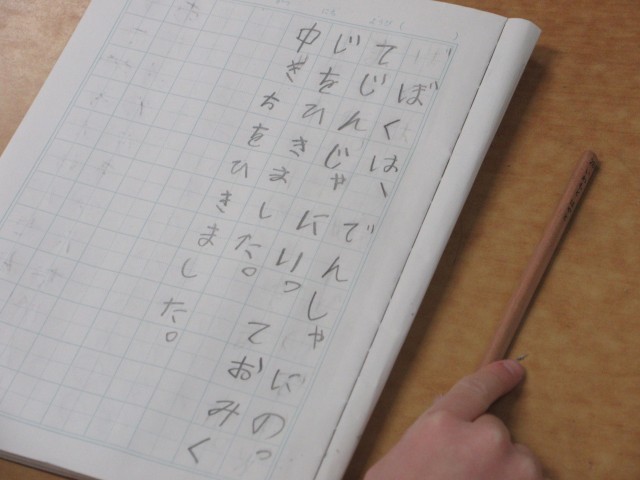 ぼくは、でんしゃにのっ
てじんじゃにいっておみく
じをひきました。
中ぎちをひきました。